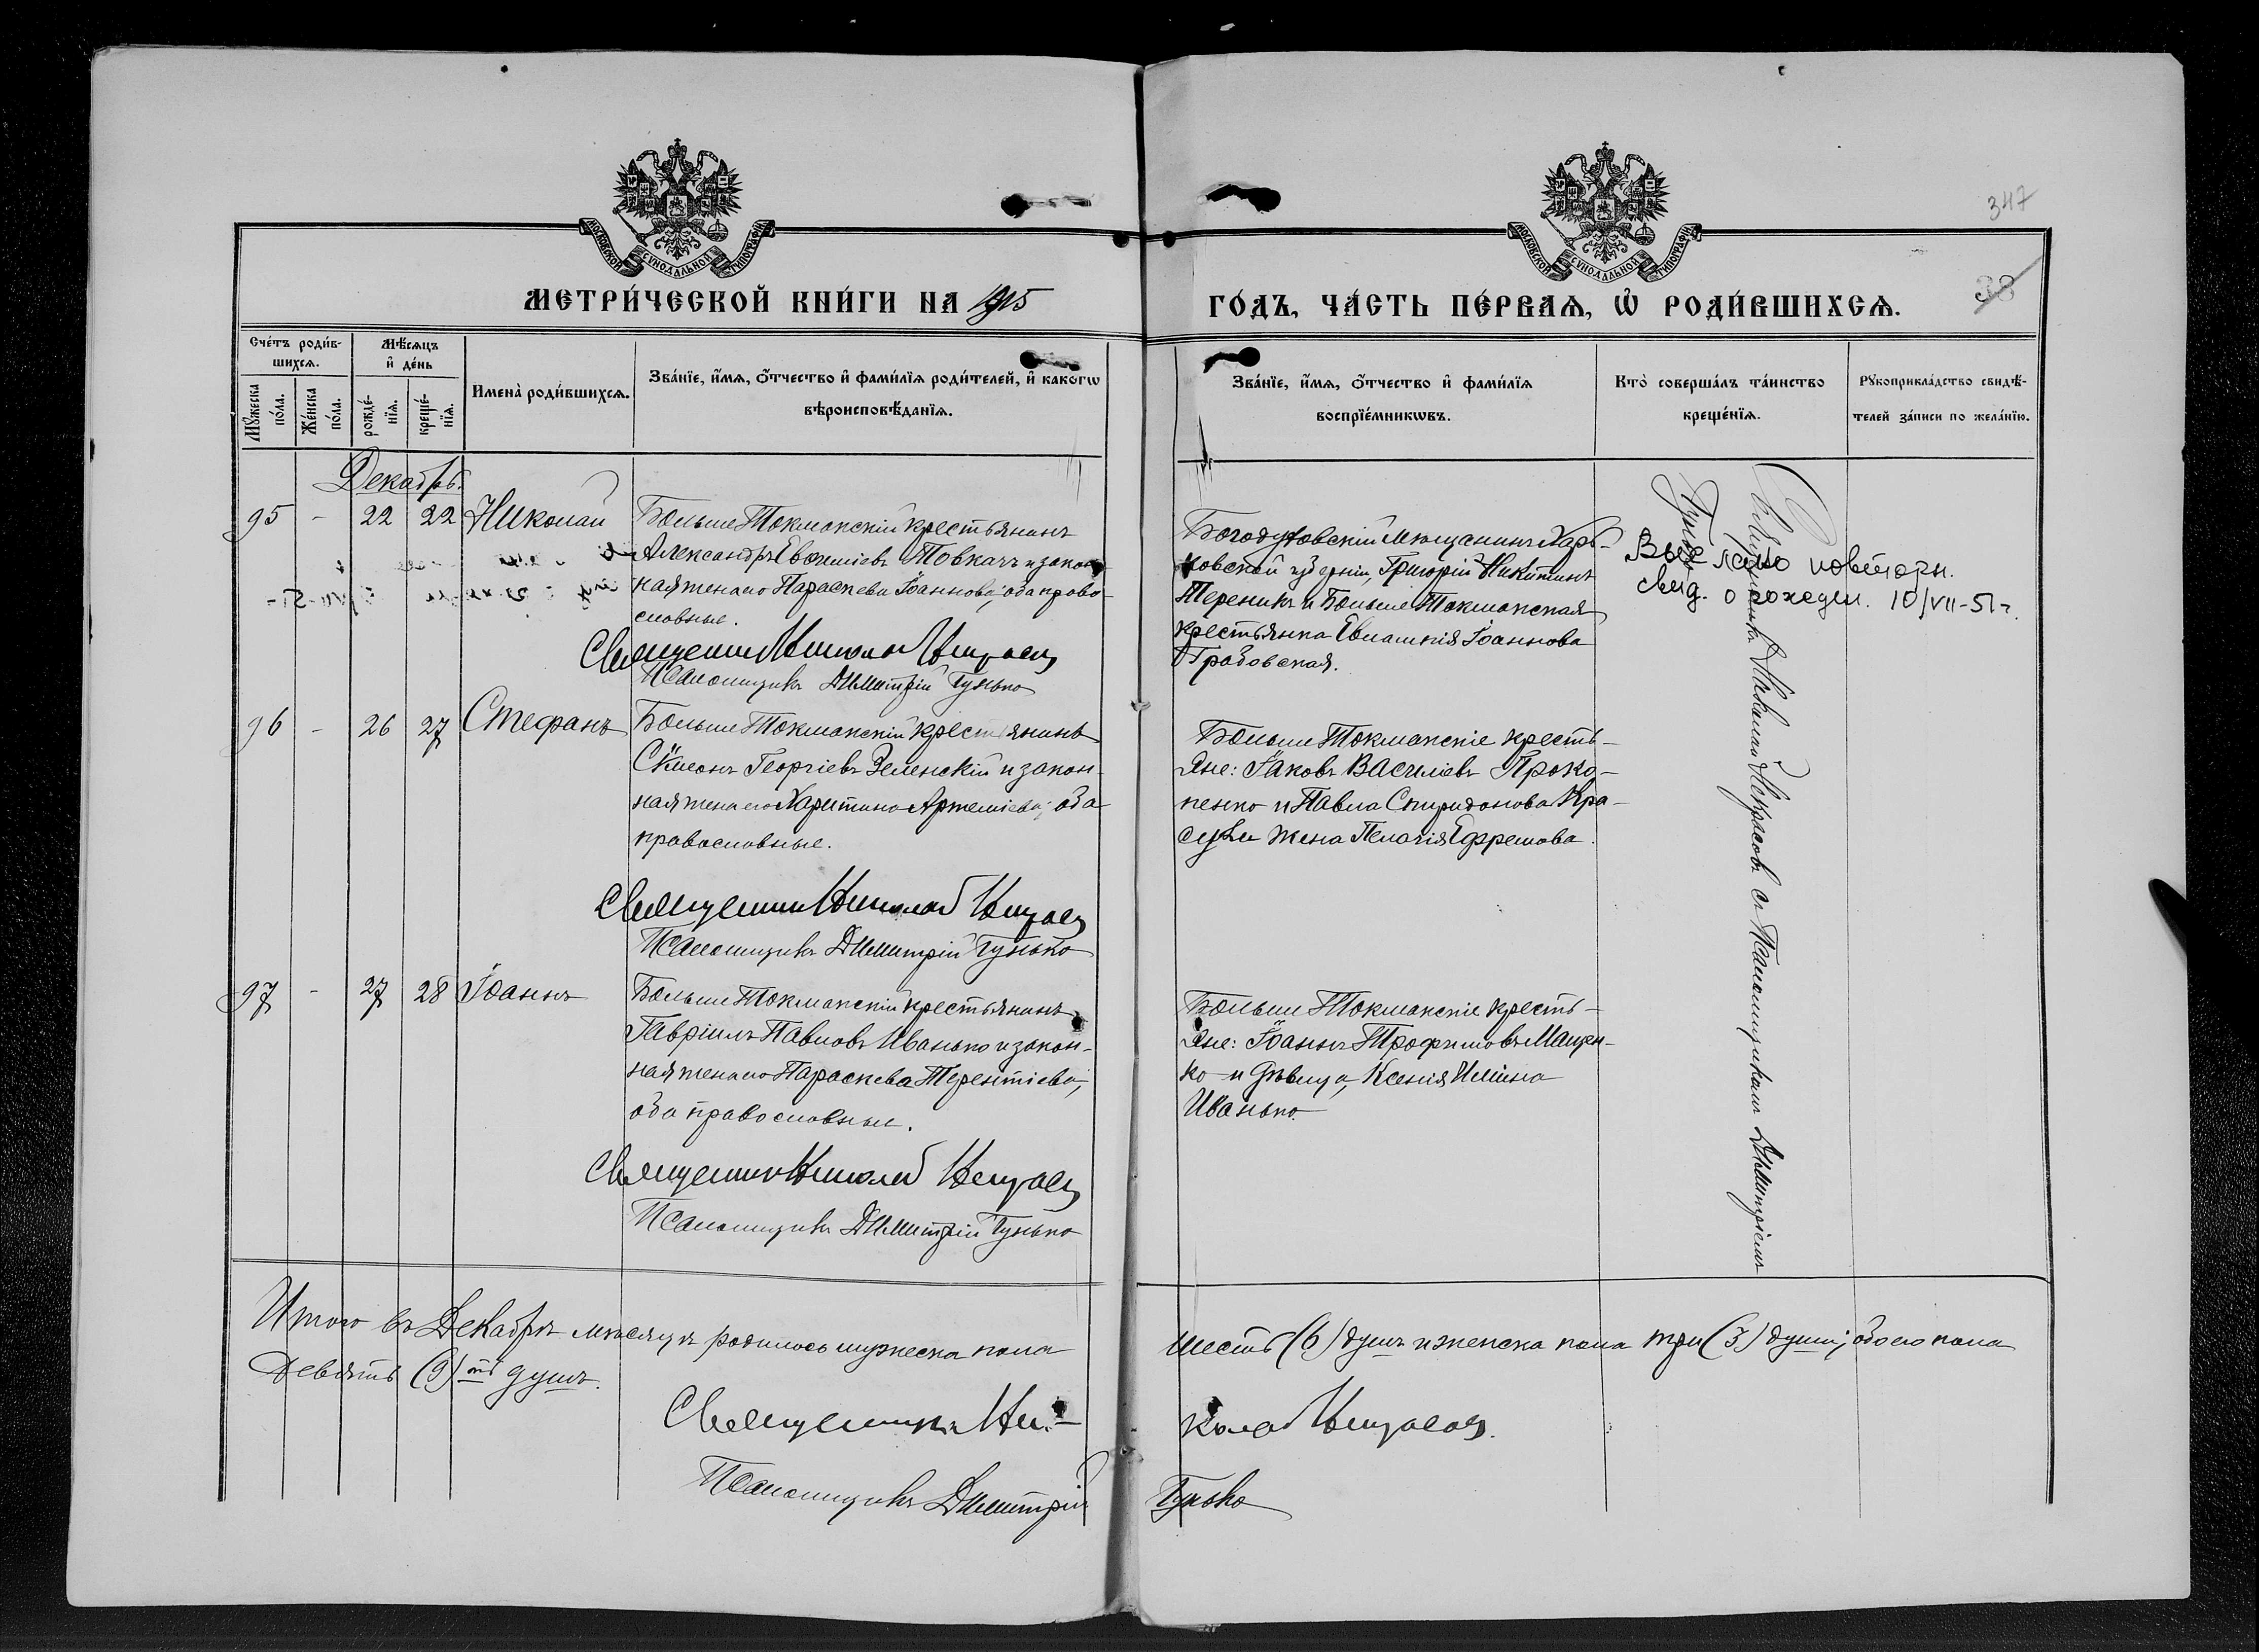 347
38
МОСКОВСКОЙ СѴНОДАЛЬНОЙ ТИПОГРАФІИ
МОСКОВСКОЙ СѴНОДАЛЬНОЙ ТИПОГРАФІИ
МЕТРИ́ЧЕСКОЙ КНИ́ГИ НА 1915
ГО́ДЪ, ЧА́СТЬ ПЕ́РВАѦ, Ѡ҆ РОДИ́ВШИХСѦ.
Сче́тъ роди́в-
шихсѧ.
Мѣ́сѧцъ
и҆ де́нь
Мꙋ́жеска
по́ла.
Же́нска
по́ла.
рожде́-
нїѧ.
креще́-
нїѧ.
Имена̀ роди́вшихсѧ.
Зва́нїе, и҆́мѧ, ѻ҆́тчество и҆ фами́лїѧ роди́телей, и҆ какогѡ
вѣроисповѣ́данїѧ.
Зва́нїе, и҆́мѧ, ѻ҆́тчество и҆ фами́лїѧ
воспрїе́мникѡвъ.
Кто̀ соверша́лъ та́инство
креще́нїѧ.
Рꙋкоприкла́дство свидѣ́-
телей за́писи по жела́нїю.
Декабрь.
95 - 22 22 Николай
Больше Токмакскій крестьянинъ
Александръ Евѳиміевъ Товкачъ и закон-
ная жена его Параскева Іоаннова; оба право-
славные.
Священникъ Николай Некрасовъ
Псаломщикъ Димитрій Гунько
Богодуховскій мѣщанинъ Харь-
ковской губерніи, Григорій Никитинъ
Теренинъ и Больше Токмакская
крестьянка Евлампія Іоаннова
Грабовская.
Выслано повторн.
свид. о рожден. 10/VII-51 г.
Священникъ Николай Некрасовъ съ Псаломщикомъ Димитріемъ
96 - 26 27 Стефанъ
Больше Токмакскій крестьянинъ
Сѵмеонъ Георгіевъ Зеленскій и закон-
ная жена его Харитина Артеміева; оба
православные.
Священникъ Николай Некрасовъ
Псаломщикъ Димитрій Гунько
Больше Токмакскіе кресть-
яне: Іаковъ Василіевъ Проко-
пенко и Павла Спиридонова Кра-
сули жена Пелагія Ефремова.
97 - 27 28 Іоаннъ
Больше Токмакскій крестьянинъ
Гавріилъ Павловъ Иванько и закон-
ная жена его Параскева Терентіева;
оба православные.
Священникъ Николай Некрасовъ
Псаломщикъ Димитрій Гунько
Больше Токмакскіе кресть-
яне: Іоаннъ Трофимовъ Мащен-
ко и дѣвица, Ксенія Иліина
Иванько.
Итого въ Декабрѣ мѣсяцѣ родилось мужеска пола шесть (6) душъ и женска пола три (3) души; обоего пола
девять (9)ть душъ.
Священникъ Николай Некрасовъ.
Псаломщикъ Димитрій Гунько